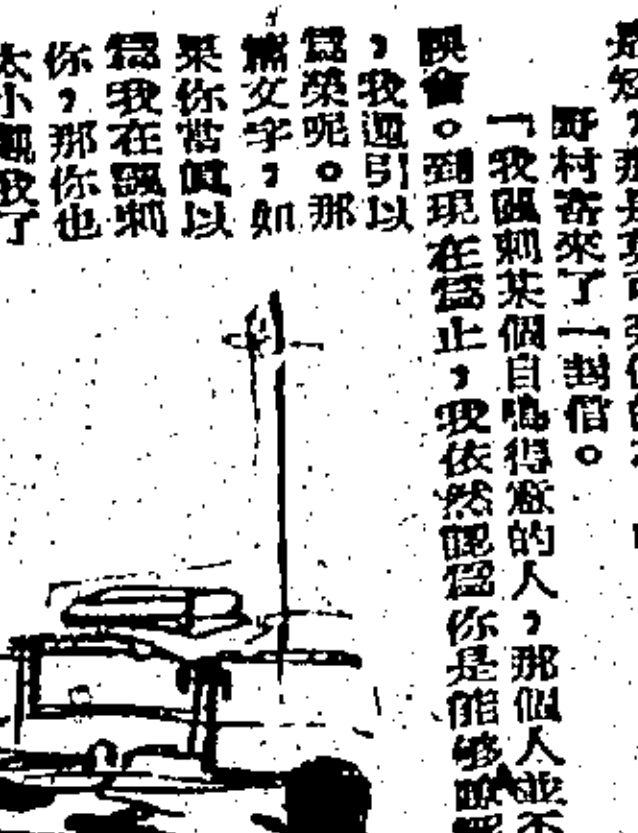 是短，那是莫可奈何的
野村寄來了一封信。
「我諷刺某個自鳴得意的人，那個人並不
誤會。到現在為止，我依然認為你是能够瞭解
，我還引以
為榮呢。那
篇文字，如
果你當真以
為我在諷刺
你，那你也
太小覷我了